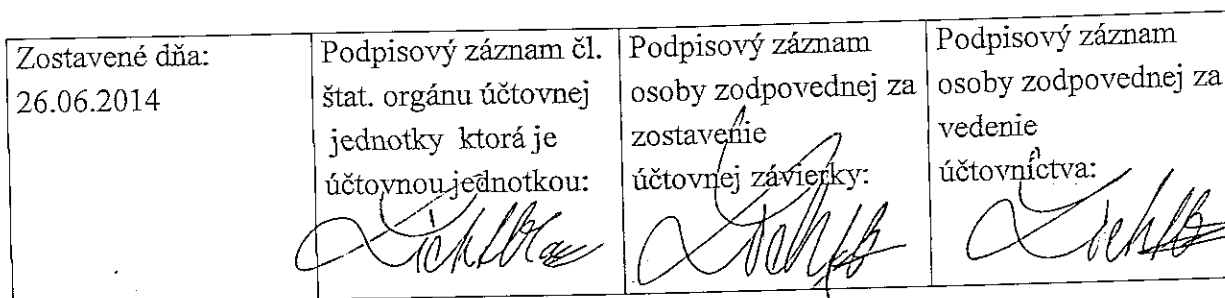 Zostavené dňa:
26.06.2014
Podpisový záznam čl.
štat. orgánu účtovnej
jednotky ktorá je
účtovnou jednotkou:
Podpisový záznam
osoby zodpovednej za
zostavenie
účtovnej závierky:
Podpisový záznam
osoby zodpovednej za
vedenie
účtovníctva: